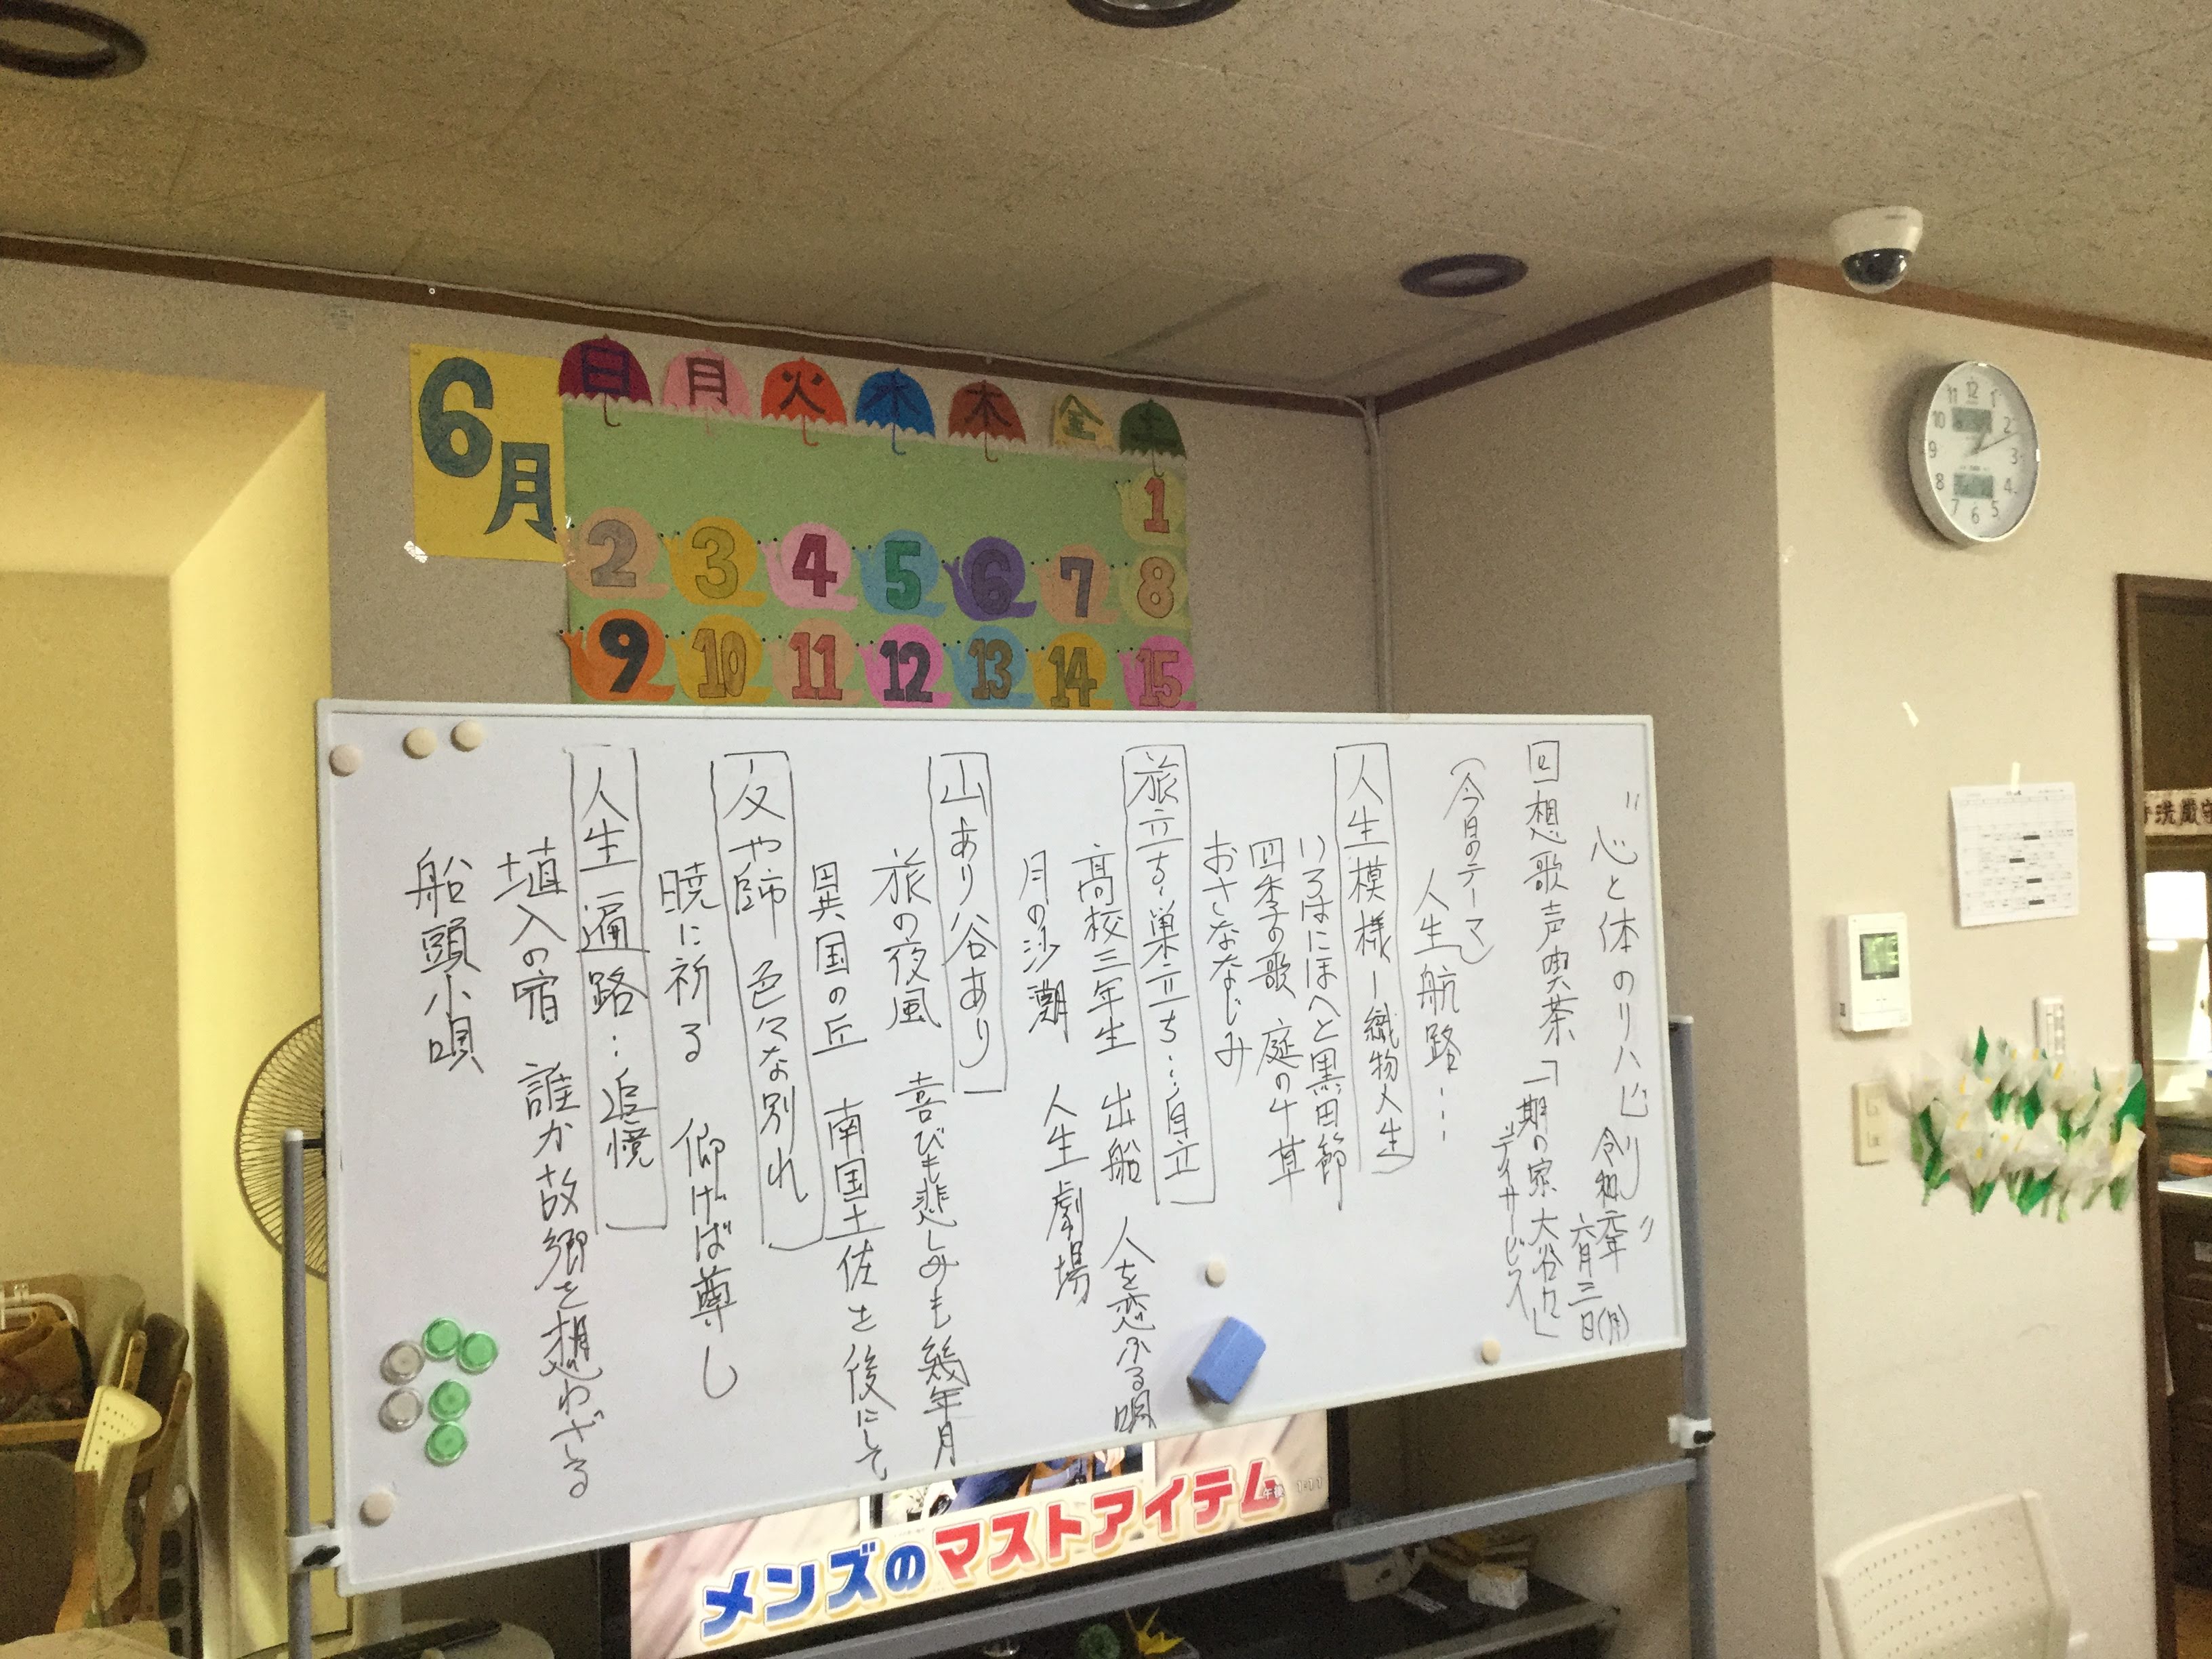 6月
日 月 火 水 木 金 土
1
2 3 4 5 6 7 8
9 10 11 12 13 14 15
"心と体のリハビリ"
令和元年
六月三日(月)
回想歌声喫茶
「一期の家 大谷
デイサービス」
(今日のテーマ)
人生航路…
人生模様ー織物人生
いろはにほへと黒田節
四季の歌 庭の千草
おさななじみ
旅立ち・巣立ち…自立
高校三年生 出船 人を恋ふる唄
月の沙漠 人生劇場
山あり谷あり
旅の夜風 喜びも悲しみも幾年月
異国の丘 南国土佐を後にして
友や師 色々な別れ
暁に祈る 仰げば尊し
人生遍路…追憶
埴入の宿 誰か故郷を想わざる
船頭小唄
メンズのマストアイテム
午後 1:11
11 12 1
10 2
9 3
8 4
7 6 5